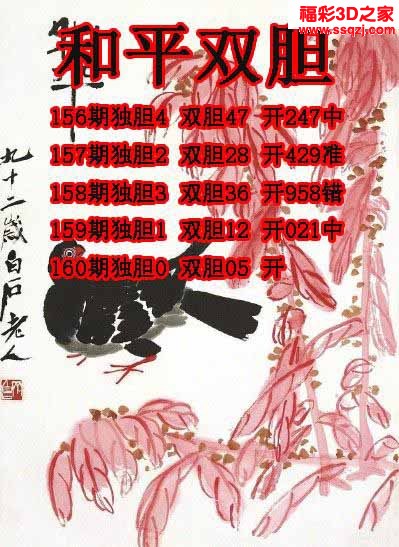 福彩3D之家
www.ssqzj.com
和平双胆
156期独胆4 双胆47 开247中
157期独胆2 双胆28 开429准
158期独胆3 双胆36 开958错
159期独胆1 双胆12 开021中
160期独胆0 双胆05 开
九十二岁白石老人